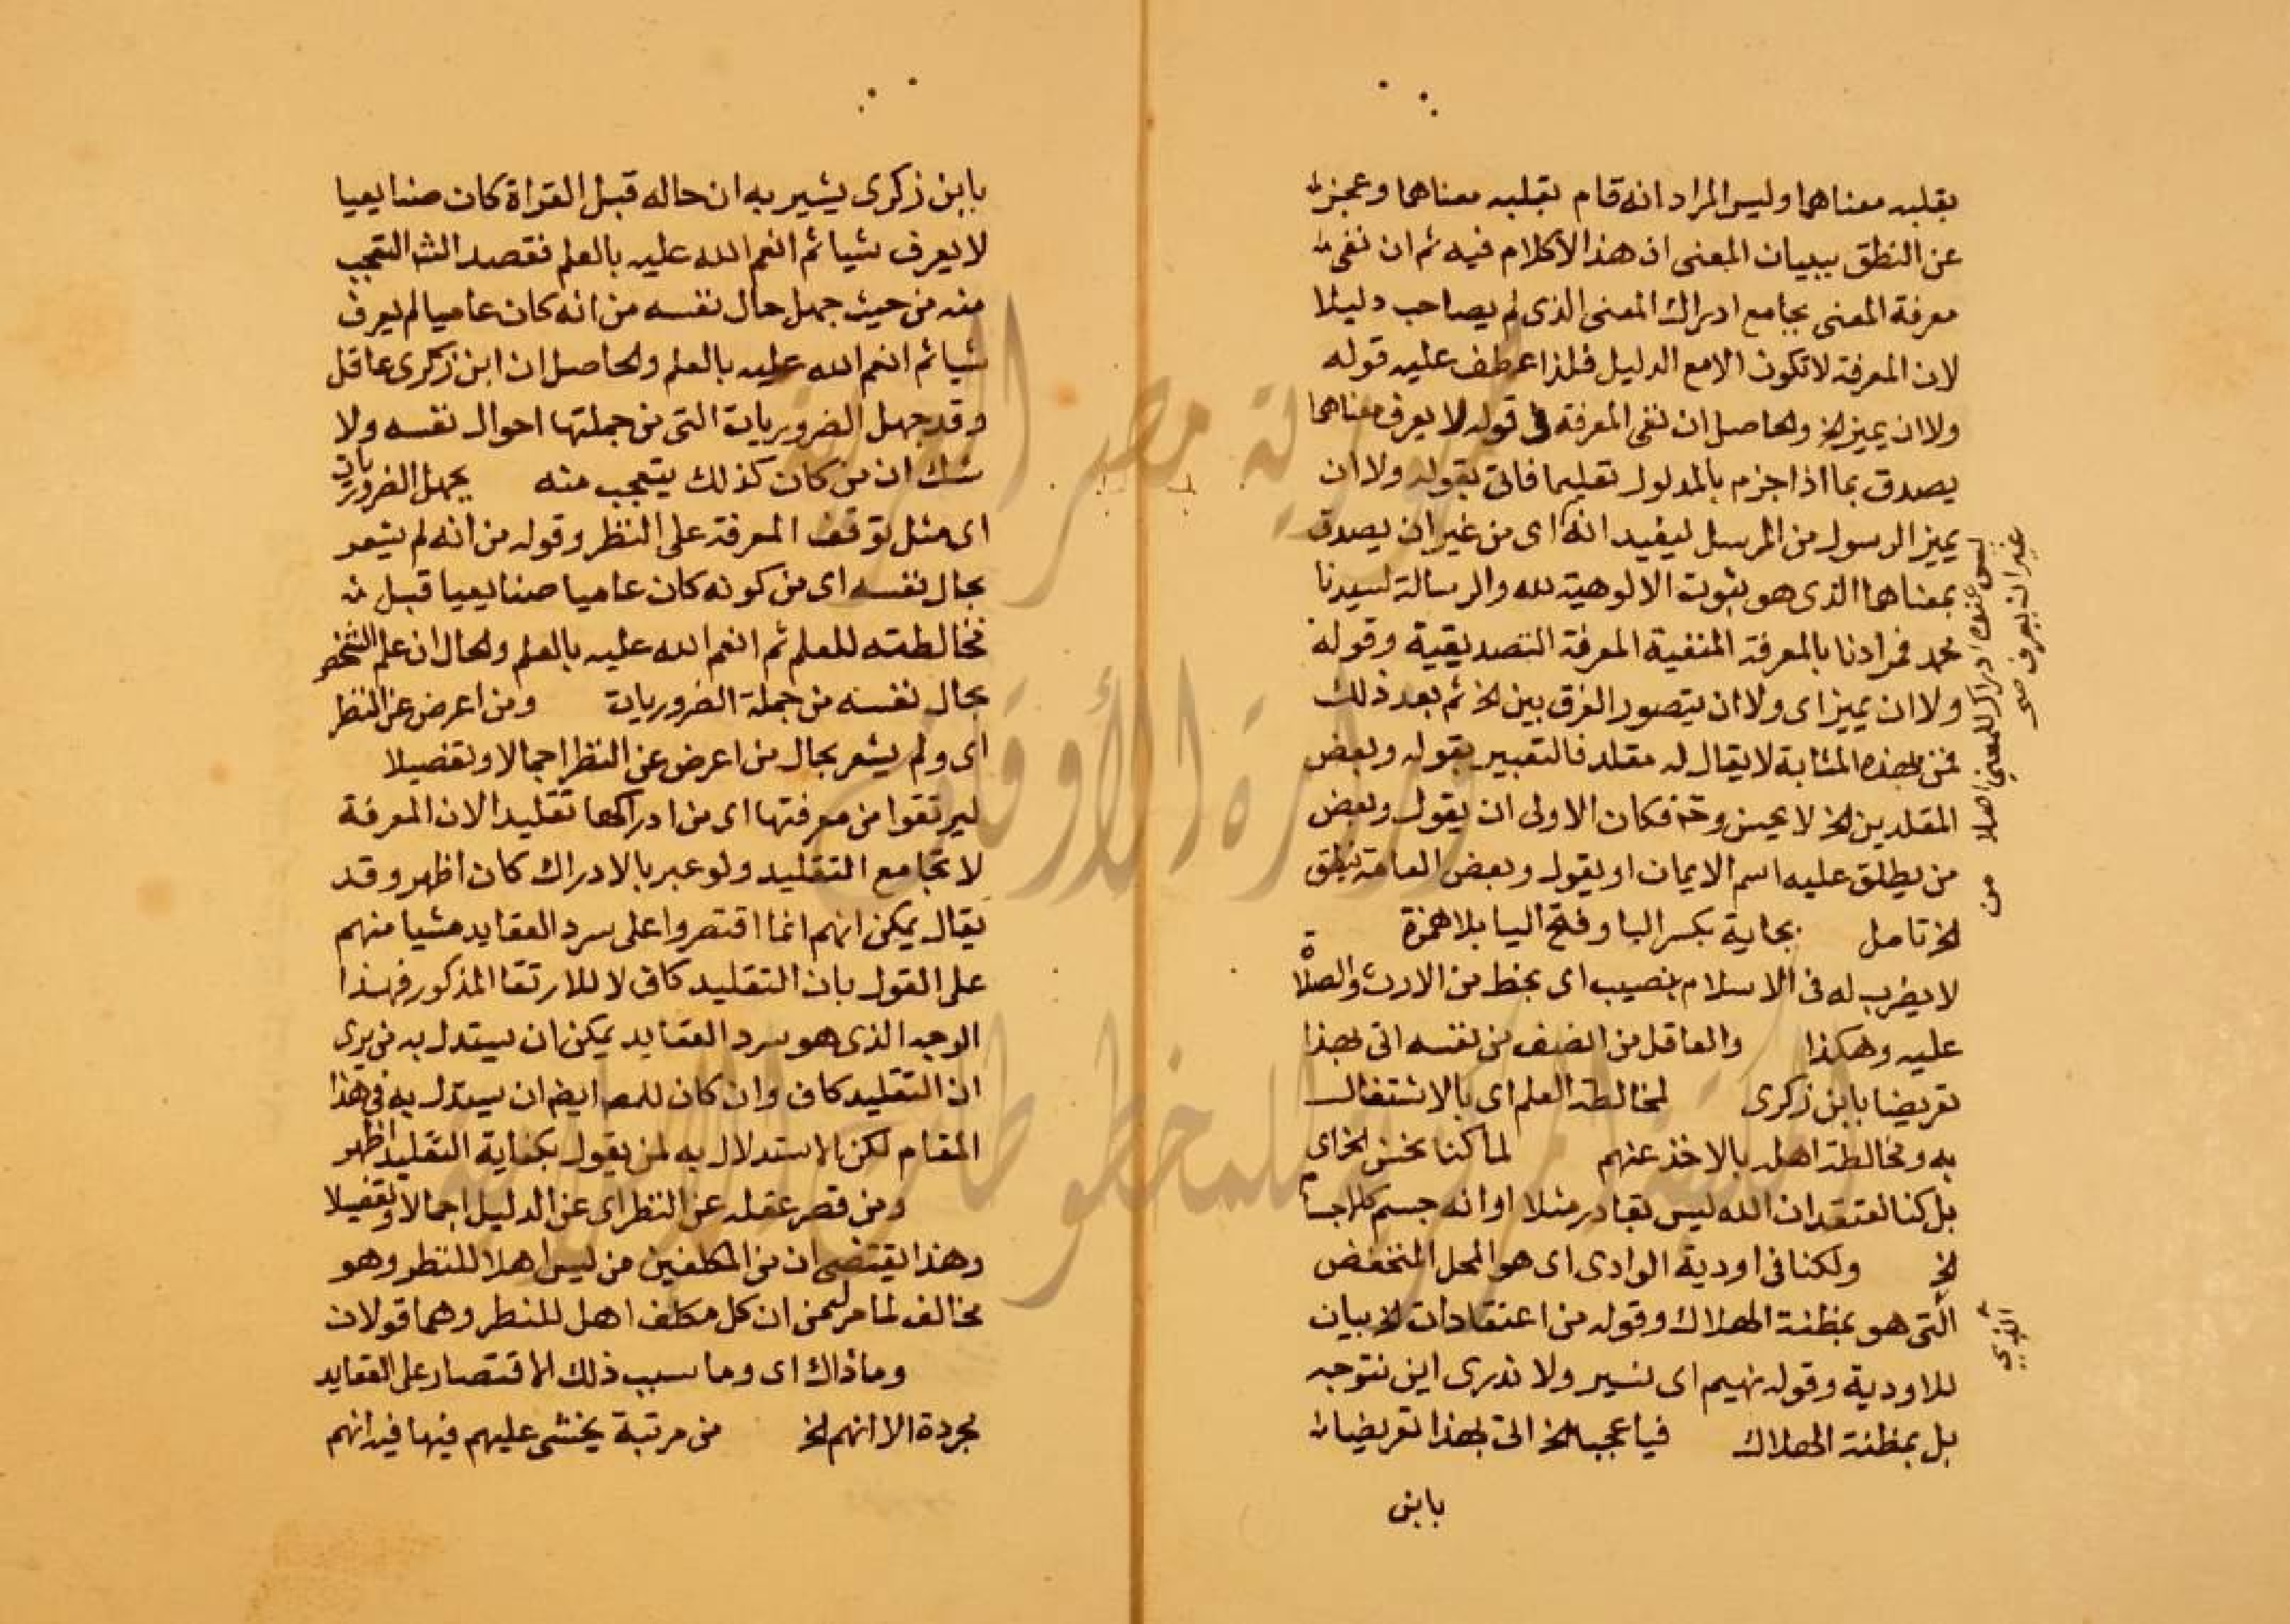 بقلبه معناهما وليس المراد انه قام بقلبه معناهما وعجزنه
عن النطق ببيان المعنى اذ هذا لا كلام فيه ثم ان نفى
معرفة المعنى يجامع ادراك المعنى الذى لم يصاحب دليلا
لان المعرفة لا تكون الا مع الدليل فلذا عطف عليه قوله
ولا ان يميز الخ والحاصل ان نفى المعرفة فى قوله لا يعرف معناهما
يصدق بما اذا جزم بالمدلول تقليما فاتى بقوله ولا ان
يميز الرسول من المرسل ليفيد انه اى من غير ان يصدق
بمعناهما الذى هو ثبوت الالوهية لله والرسالة لسيدنا
محمد فمرادنا بالمعرفة المنفية المعرفة التصديقية وقوله
ولا ان يميز اى ولا ان يتصور الفرق بين الخ ثم بعد ذلك
فمن بهذه المثابة لا يقال له مقلد فالتعبير بقوله وبعض
المقلدين الخ لا يحسن وح فكان الاولى ان يقول وبعض
من يطلق عليه اسم الايمان او يقول وبعض العامة ينطق
الخ تامل بجاية بكسر البا وفتح اليا بلا همزة
لا يضرب له فى الاسلام بنصيب اى بحظ من الارث والصلاة
عليه وهكذا والعاقل من انصف من نفسه اتى بهذا
تعريضا بابن زكرى لمخالطة العلم اى بالاشتغال
به ومخالطة اهله بالاخذ عنهم لما كنا نحسن الخ اى
بل كنا نعتقد ان الله ليس بقادر مثلا او انه جسم كالاجسام
الخ ولكنا فى اودية الوادى اى هو المحل المنخفض
التى هو بمظنة الهلاك وقوله من اعتقادات الخ بيان
للاودية وقوله نهيم اى نسير ولا ندرى اين نتوجه
بل بمظنة الهلاك فيا عجبا الخ اتى بهذا تعريضا
بابن
ليس عنك ادراك للمعنى اصلا من
غير ان يعرف صح
الذي
بابن زكرى يشير به ان حاله قبل القراة كان صنايعيا
لا يعرف شيا ثم انعم الله عليه بالعلم فقصد الش التعجب
منه من حيث جهل حال نفسه من انه كان عاميا لم يعرف
شيا ثم انعم الله عليه بالعلم والحاصل ان ابن زكرى عاقل
وقد جهل الضروريات التى من جملتها احوال نفسه ولا
شك ان من كان كذلك يتعجب منه يجهل الضروريات
اى مثل توقف المعرفة على النظر وقوله من انه لم يشعر
بحال نفسه اى من كونه كان عاميا صنايعيا قبل
مخالطته للعلم ثم انعم الله عليه بالعلم والحال ان علم الشخص
بحال نفسه من جملة الضروريات ومن اعرض عن النظر
اى ولم يشعر بحال من اعرض عن النظر اجمالا وتفصيلا
ليرتقوا من معرفتها اى من ادراكها تقليدا لان المعرفة
لا تجامع التقليد ولو عبر بالادراك كان اظهر وقد
يقال يمكن انهم انما اقتصروا على سرد العقايد مشيا منهم
على القول بان التقليد كافى لا للارتقا المذكور فهذا
الوجه الذى هو سرد العقايد يمكن ان يستدل به من يرى
ان التقليد كاف وان كان للمص ايضا ان يستدل به فى هذا
المقام لكن الاستدلال به لمن يقول بكفاية التقليد اظهر
ومن قصر عقله عن النظر اى عن الدليل اجمالا وتفصيلا
وهذا يقتضى ان من المكلفين من ليس اهلا للنظر وهو
مخالف لما مر من ان كل مكلف اهل للنظر وهما قولان
وما ذاك اى وما سبب ذلك الاقتصار على العقايد
مجردة الا انهم الخ من مرتبة يخشى عليهم فيها فيه انهم
جمهورية مصر العربية
وزارة الأوقاف
المكتبة المركزية للمخطوطات الإسلامية